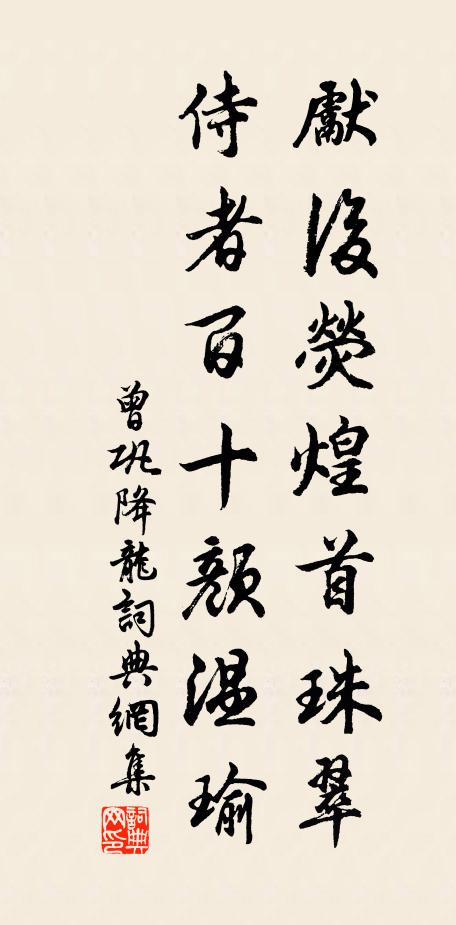 獻後熒煌首珠翠
侍者百十顏温瑜
曾鞏降龍詞典網集
詞典网印